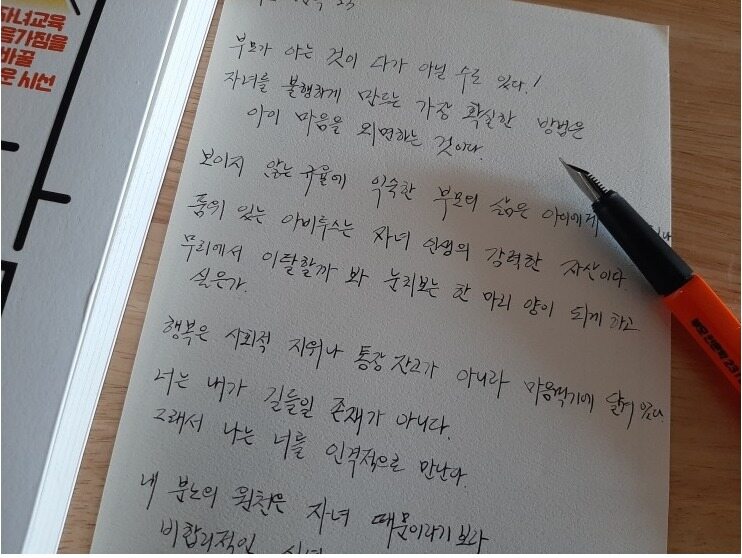 자녀교육
음가짐을
바꿀
운 시선
부모가 아는 것이 다가 아닐 수도 있다!
자녀를 불행하게 만드는 가장 확실한 방법은
아이 마음을 외면하는 것이다.
보이지 않는 규율에 익숙한 부모의 삶은 아이에게
품위 있는 아비투스는 자녀 인생의 강력한 자산이다.
무리에서 이탈할까 봐 눈치보는 한 마리 양이 되게 하고
싶은가.
행복은 사회적 지위나 통장 잔고가 아니라 마음먹기에 달려 있다.
너는 내가 길들일 존재가 아니다.
그래서 나는 너를 인격적으로 만난다.
내 분노의 원천은 자녀 때문이라기 보다
비합리적인
부모 인문학